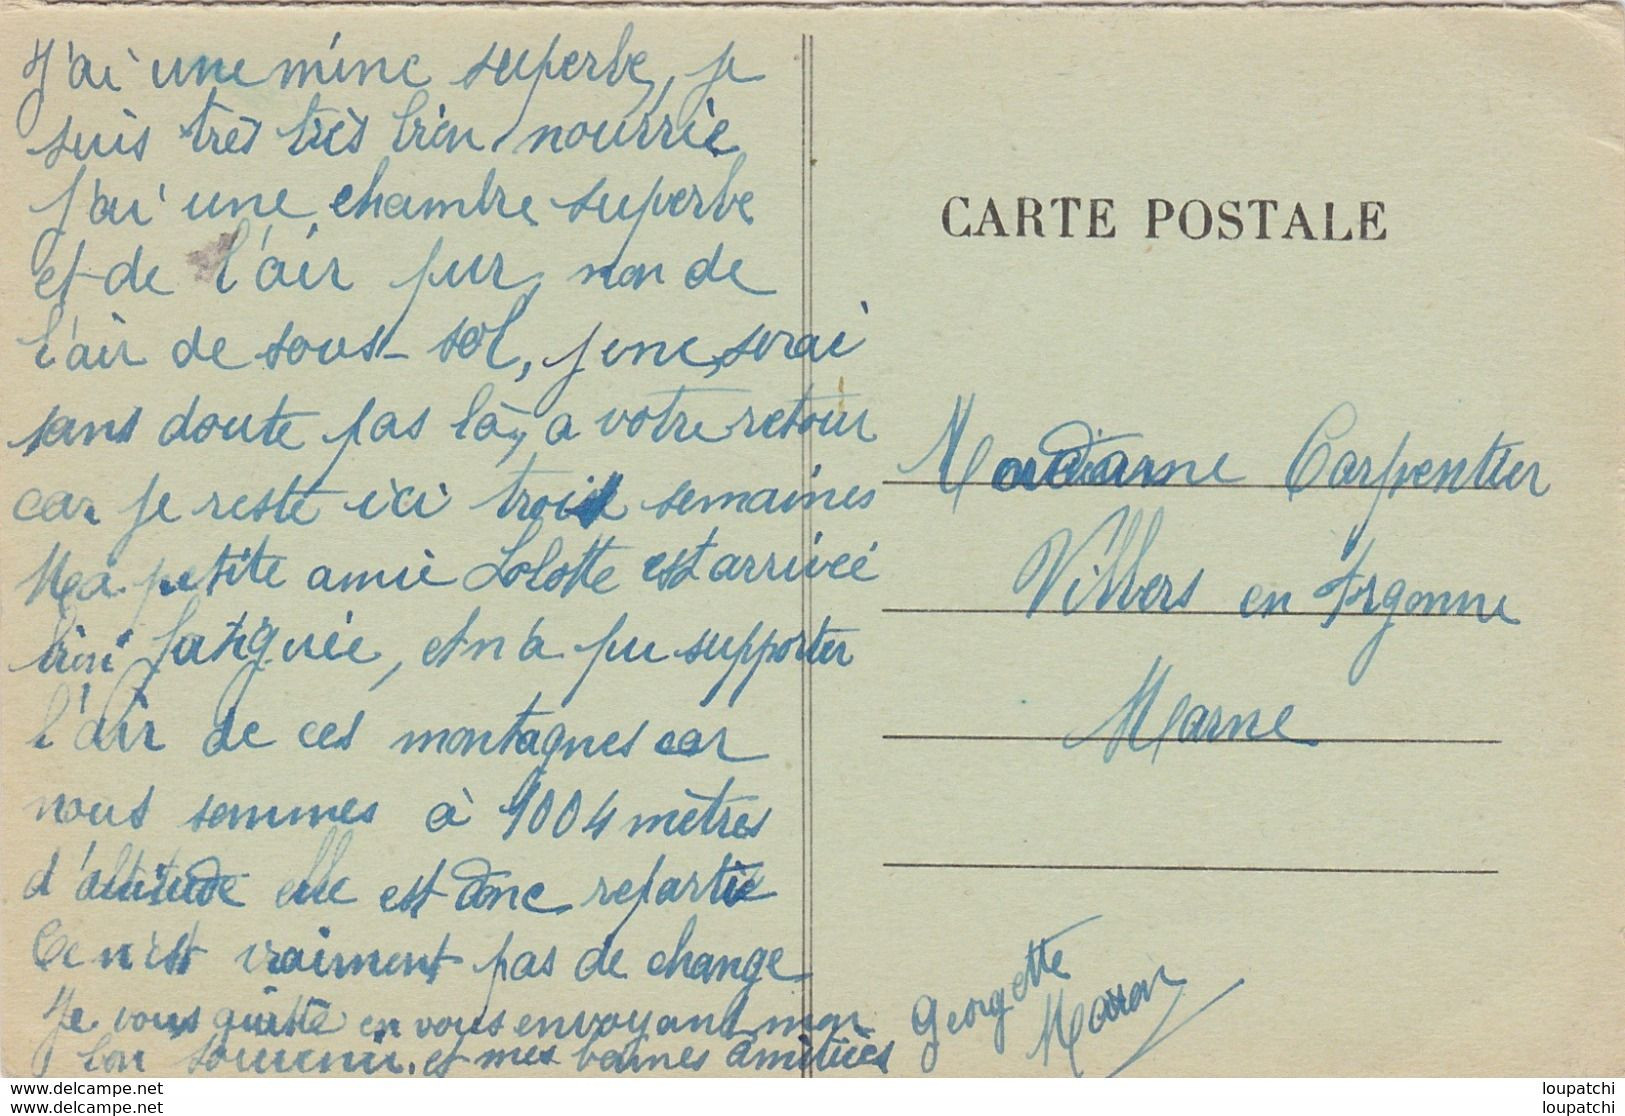 J'ai une mine superbe, je
suis très très bien nourrie
J'ai une chambre superbe
et de l'air pur, non de
l'air de sous-sol, je ne serai
sans doute pas là, a votre retour
car je reste ici trois semaines
Ma petite amie Lolotte est arrivée
bien fatiguée, et n'a pu supporter
l'air de ces montagnes car
nous sommes à 1004 mètres
d'altitude elle est donc repartie
Ce n'est vraiment pas de change
Je vous quitte en vous envoyant mon
bon souvenir. et mes bonnes amitiées
Georgette
CARTE POSTALE
Madame Carpentier
Villers en Argonne
Marne
www.delcampe.net
www.delcampe.net
loupatchi
loupatchi